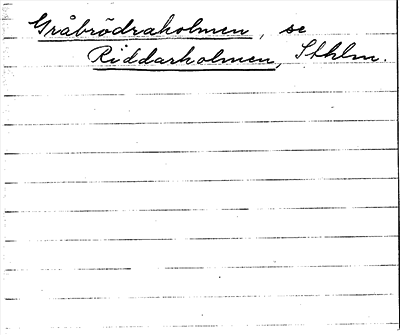 Gråbrödraholmen, se
Riddarholmen, Sthlm.